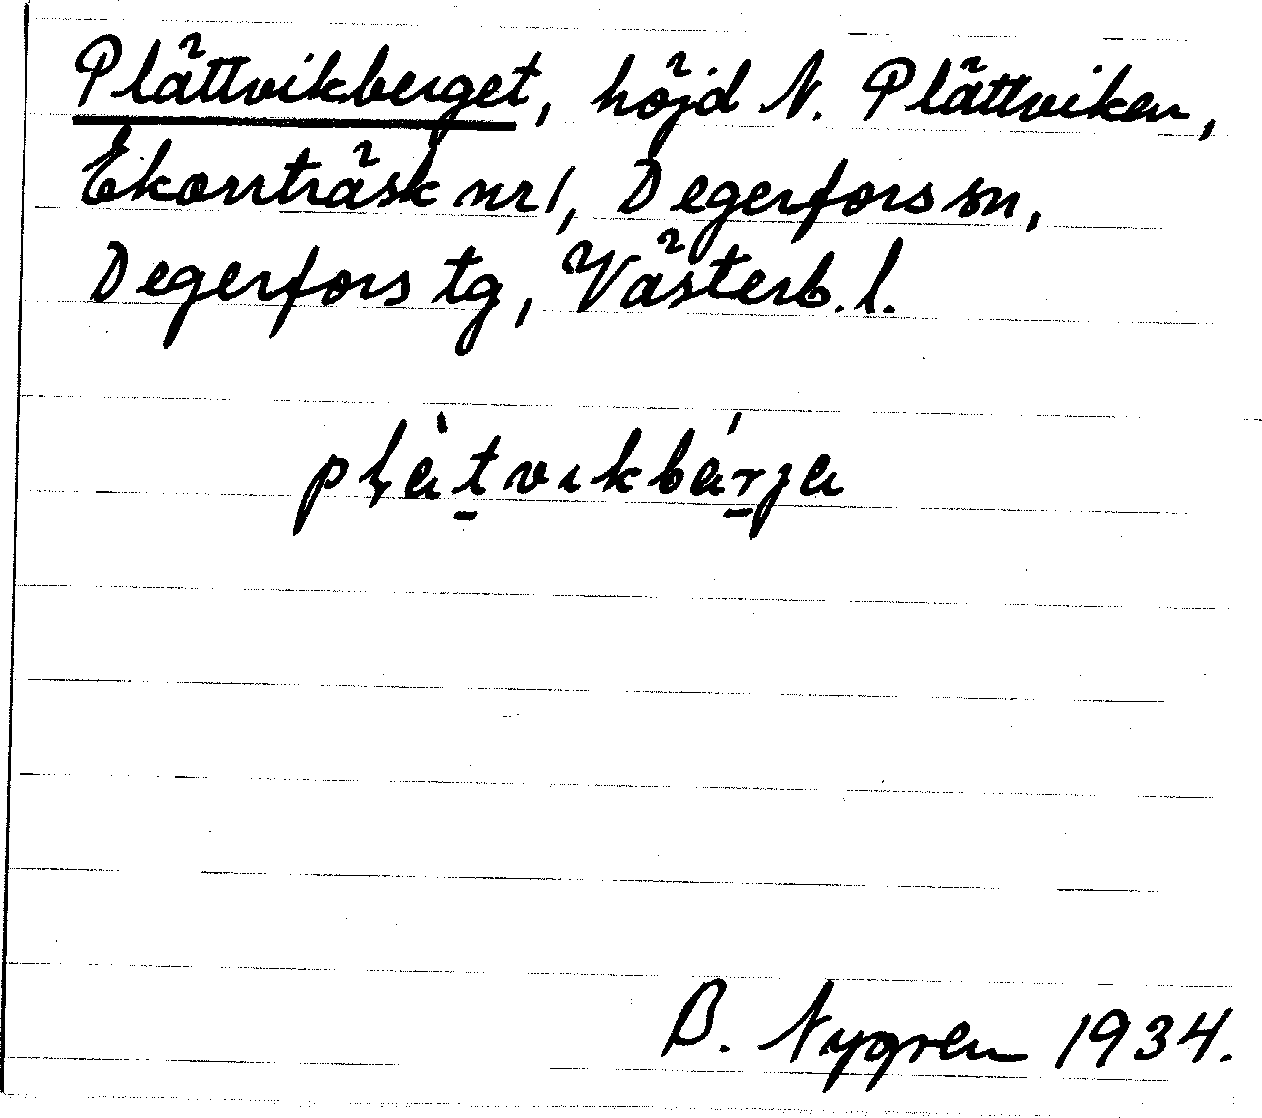 Plättvikberget, höjd N. Plättviken,
Ekorrträsk nr 1, Degerfors sn,
Degerfors tg, Västerb. l.
plàtvikbárja
B. Nygren 1934.